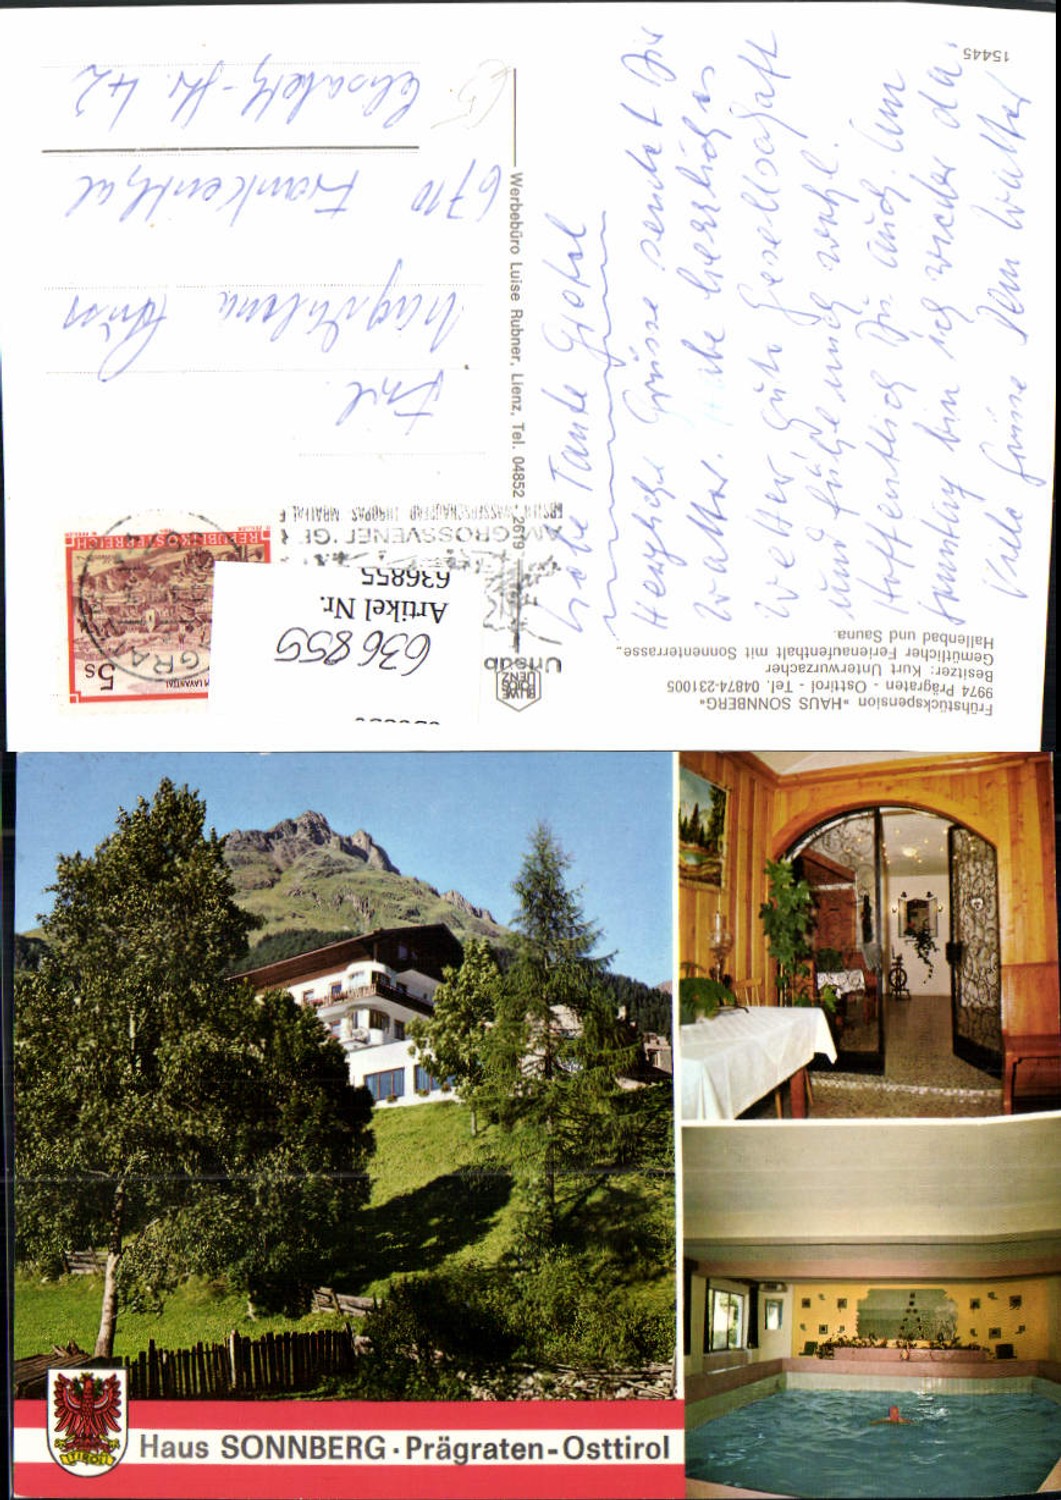 15445
Liebe Tante Gretel
Herzliche Grüsse sendet Dir
Walter. Habe herrliches
Wetter gute Gesellschaft
und fühle mich wohl.
Hoffentlich Du auch. Am
Sonntag bin ich wieder da.
Viele Grüsse Dein Walter
Frl.
Magdalena
6710 Frankenthal
Elisabeth-Str. 42
Werbebüro Luise Rubner, Lienz, Tel. 04852 - 2619
REPUBLIK ÖSTERREICH
5s
AM GROSSVENEDIGER
Urlaub
636855
Artikel Nr.
636855
Frühstückspension »HAUS SONNBERG«
9974 Prägraten - Osttirol - Tel. 04874-231005
Besitzer: Kurt Unterwurzacher
Gemütlicher Ferienaufenthalt mit Sonnenterrasse,
Hallenbad und Sauna.
TIROL
Haus SONNBERG · Prägraten - Osttirol